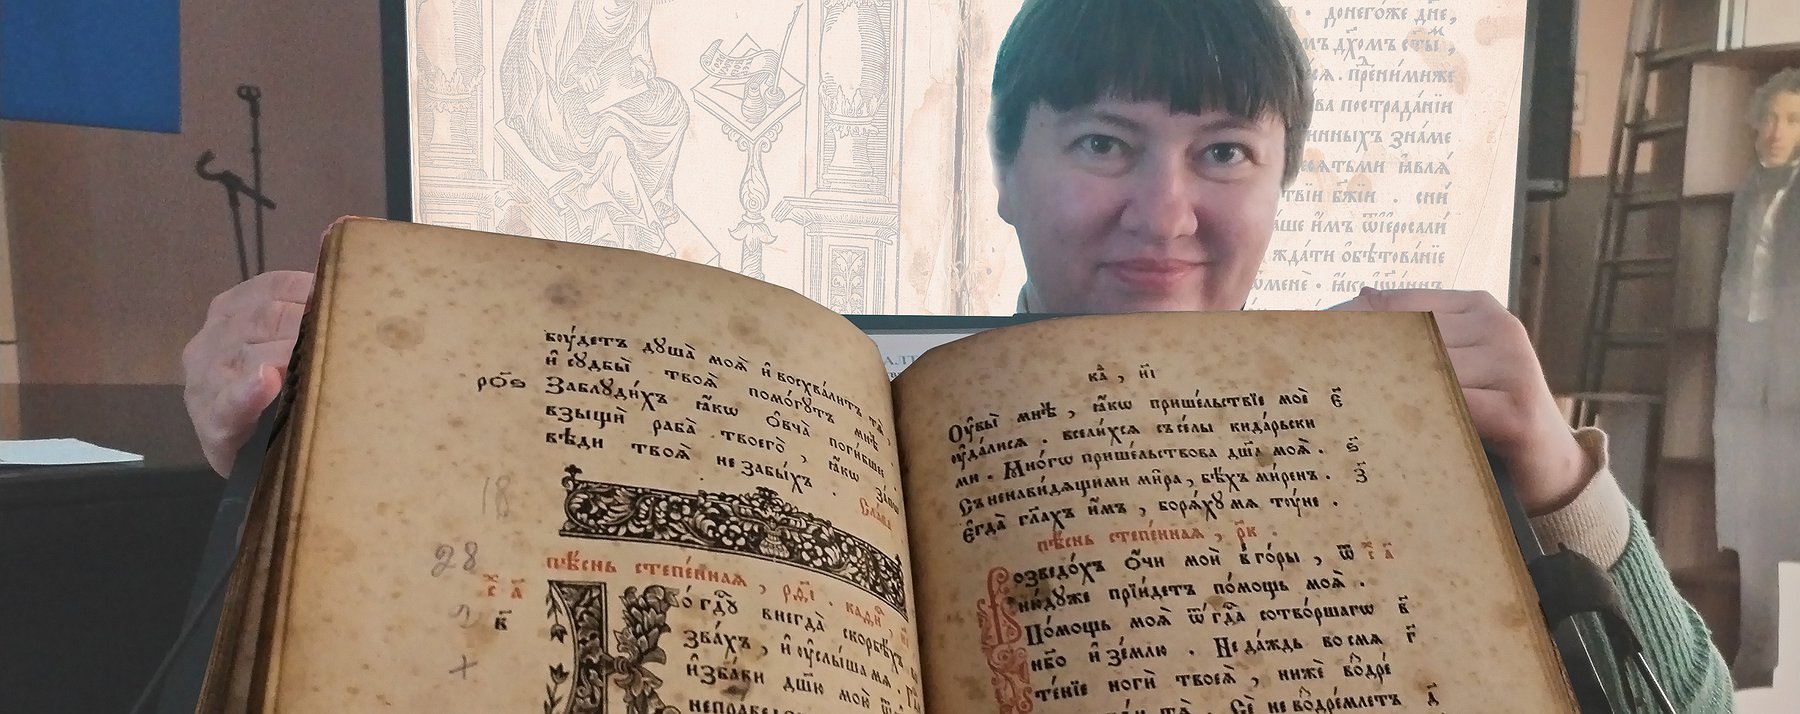 донего́же дне,
мъ дх҃омъ ст҃ы́,
ся. прени́мже
ва пострада́нїи
инныхъ зна́ме
еся́тьми ꙗ҆вля́
твїи бж҃їи . сни́
аше и҆мъ ѿ і҆ерⷭ҇али́
жда́ти ѻ҆бѣтова́нїе
ѡ҆менѐ . ꙗ҆́кѡ і҆ѡа́ннъ
боу́детъ дꙋша̀ моѧ̀ и҆ восхва́литъ тѧ̀,
и҆ сꙋдбы̀ твоѧ̀ помо́гꙋтъ мнѣ̀ .
рѻ҃ѕ Заблꙋди́хъ ꙗ҆́кѡ ѻ҆вча̀ поги́бше .
взыщѝ раба̀ твоего̀ , ꙗ҆́кѡ за́пѡ
вѣди твоѧ̀ не забы́хъ .
Сла́ва
18
пѣ́снь степе́ннаѧ , рѳ҃і . каѳи́
28
х҃с а҃
Ко гдⷭ҇ꙋ внегда̀ скорбѣ́хъ
в҃ зва́хъ , и҆ ᲂу҆слы́ша мѧ .
и҆зба́ви дш҃ꙋ мою̀
+
непра́ве
ка҃ , и҃і
Оу҆вы̀ мнѣ̀ , ꙗ҆́кѡ прише́льствїе моѐ є҃
ᲂу҆дали́сѧ . всели́хсѧ съ се́лы кида́рьски
ми . Мно́гѡ прише́льствова дш҃а моѧ̀ . ѕ҃
Съ ненави́дѧщими ми́ра , бѣ́хъ ми́ренъ . з҃
є҆гда̀ гл҃ахъ и҆̀мъ , борѧ́хꙋ мѧ тꙋ́не .
пѣ́снь степе́ннаѧ , р҃к .
Возведо́хъ ѻ҆́чи моѝ в го́ры , ѿ х҃с а҃
ню́дꙋже прїи́детъ по́мощь моѧ̀ .
По́мощь моѧ̀ ѿ гдⷭ҇а сотво́ршагѡ в҃
нб҃о и҆ зе́млю . Не да́ждь во смѧ г҃
те́нїе ногѝ твоеѧ̀ , нижѐ воздре́
тъ храни́ тѧ̀ . Сѐ не воздре́млетъ д҃